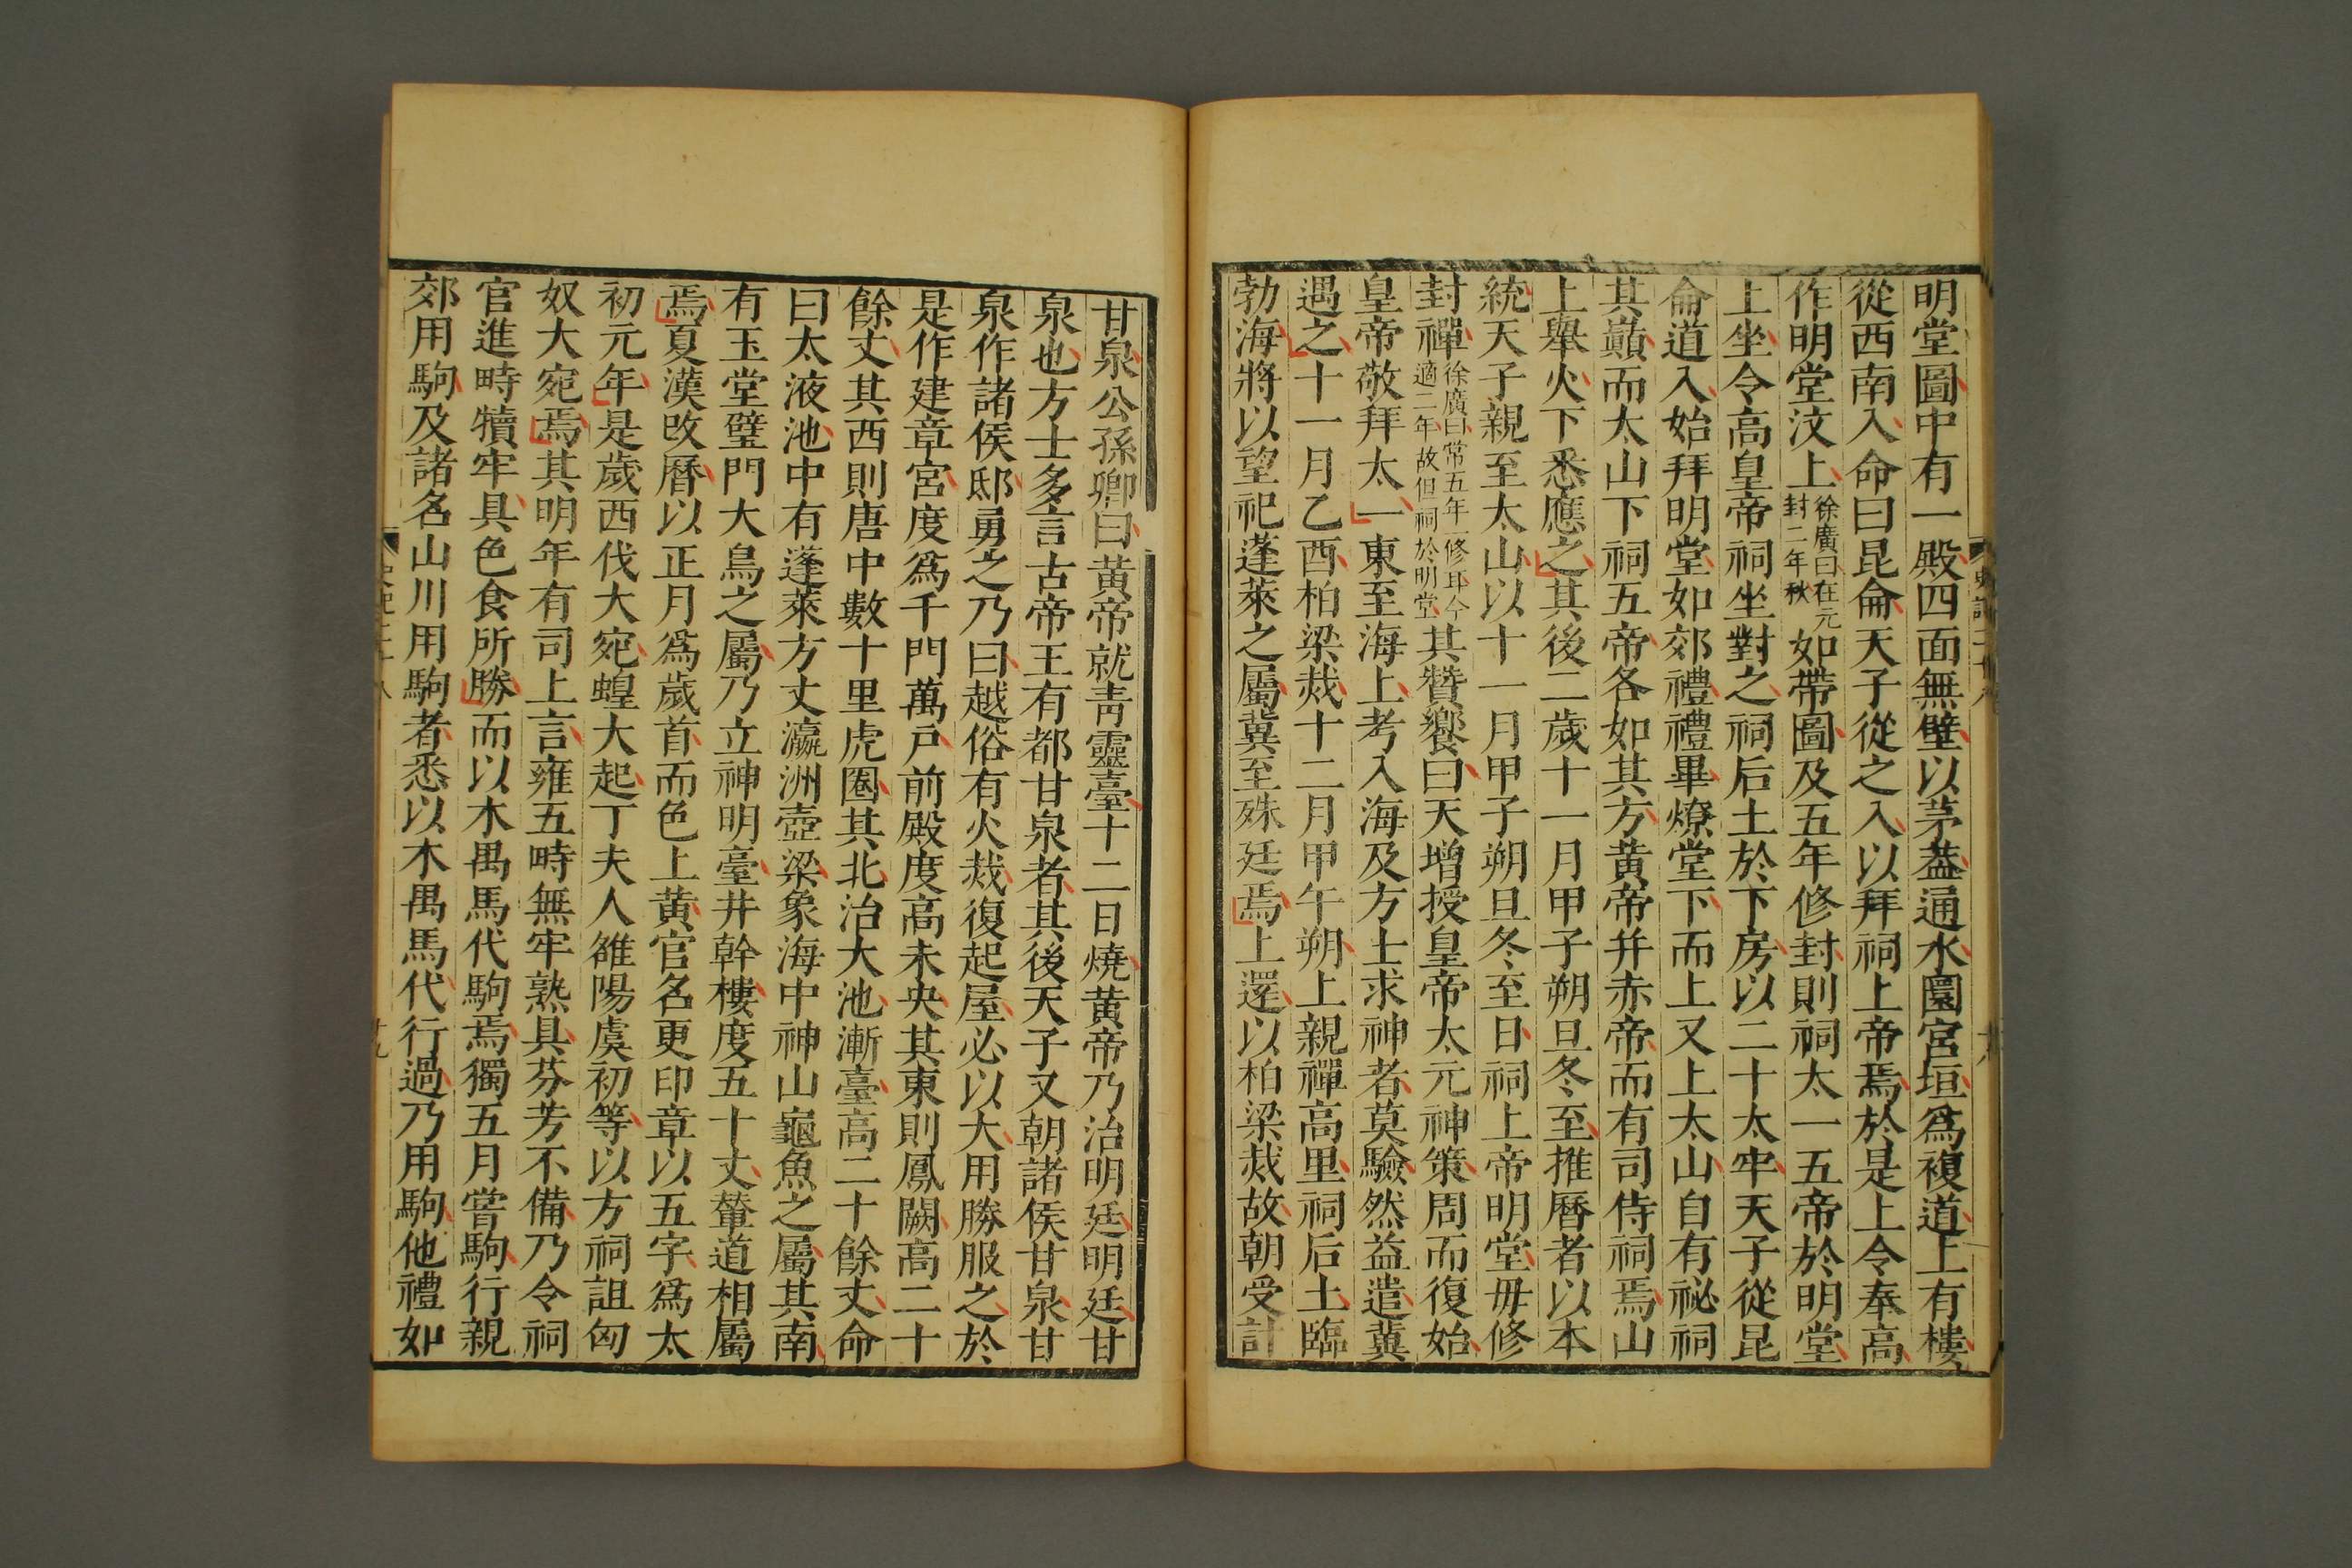 明堂圖中有一殿四面無壁以茅葢通水圜宮垣爲複道上有樓
從西南入命曰昆侖天子從之入以拜祠上帝焉於是上令奉高
作明堂汶上徐廣曰在元封二年秋如帶圖及五年修封則祠太一五帝於明堂
上坐令高皇帝祠坐對之祠后土於下房以二十太牢天子從昆
侖道入始拜明堂如郊禮禮畢燎堂下而上又上太山自有祕祠
其巓而太山下祠五帝各如其方黃帝并赤帝而有司侍祠焉山
上舉火下悉應之其後二歲十一月甲子朔旦冬至推曆者以本
統天子親至太山以十一月甲子朔旦冬至日祠上帝明堂毋修
封禪徐廣曰常五年一修耳今適二年故但祠於明堂其贊饗曰天增授皇帝太元神策周而復始
皇帝敬拜太一東至海上考入海及方士求神者莫驗然益遣冀
遇之十一月乙酉柏梁烖十二月甲午朔上親禪高里祠后土臨
勃海將以望祀蓬萊之屬冀至殊廷焉上還以柏梁烖故朝受計
甘泉公孫卿曰黃帝就靑靈臺十二日燒黃帝乃治明廷明廷甘
泉也方士多言古帝王有都甘泉者其後天子又朝諸侯甘泉甘
泉作諸侯邸勇之乃曰越俗有火烖復起屋必以大用勝服之於
是作建章宮度爲千門萬戶前殿度高未央其東則鳳闕高二十
餘丈其西則唐中數十里虎圈其北治大池漸臺高二十餘丈命
曰太液池中有蓬萊方丈瀛洲壺梁象海中神山龜魚之屬其南
有玉堂璧門大鳥之屬乃立神明臺井幹樓度五十丈輦道相屬
焉夏漢改曆以正月爲歲首而色上黃官名更印章以五字爲太
初元年是歲西伐大宛蝗大起丁夫人雒陽虞初等以方祠詛匈
奴大宛焉其明年有司上言雍五畤無牢熟具芬芳不備乃令祠
官進畤犢牢具色食所勝而以木禺馬代駒焉獨五月嘗駒行親
郊用駒及諸名山川用駒者悉以木禺馬代行過乃用駒他禮如